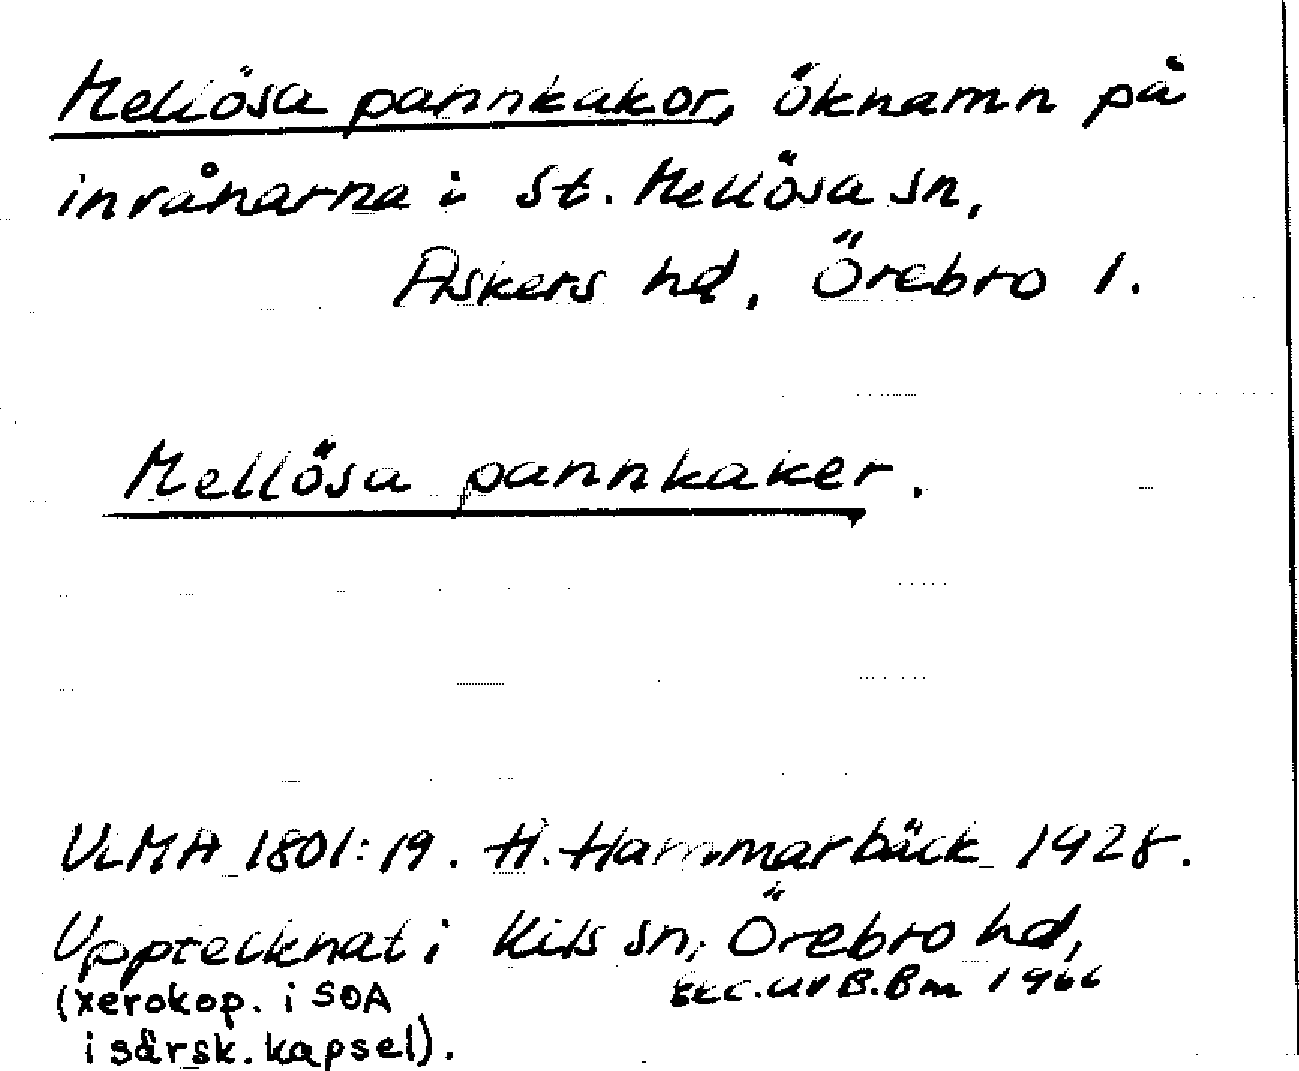 Mellösa pannkakor, öknamn på
invånarna i St. Mellösa sn,
Askers hd, Örebro l.
Mellösa pannkaker.
ULMA 1801:19. H. Hammarbäck 1928.
Upptecknat i Kils sn, Örebro hd,
(xerokop. i SOA exc. av B.Bm 1966
i särsk. kapsel).